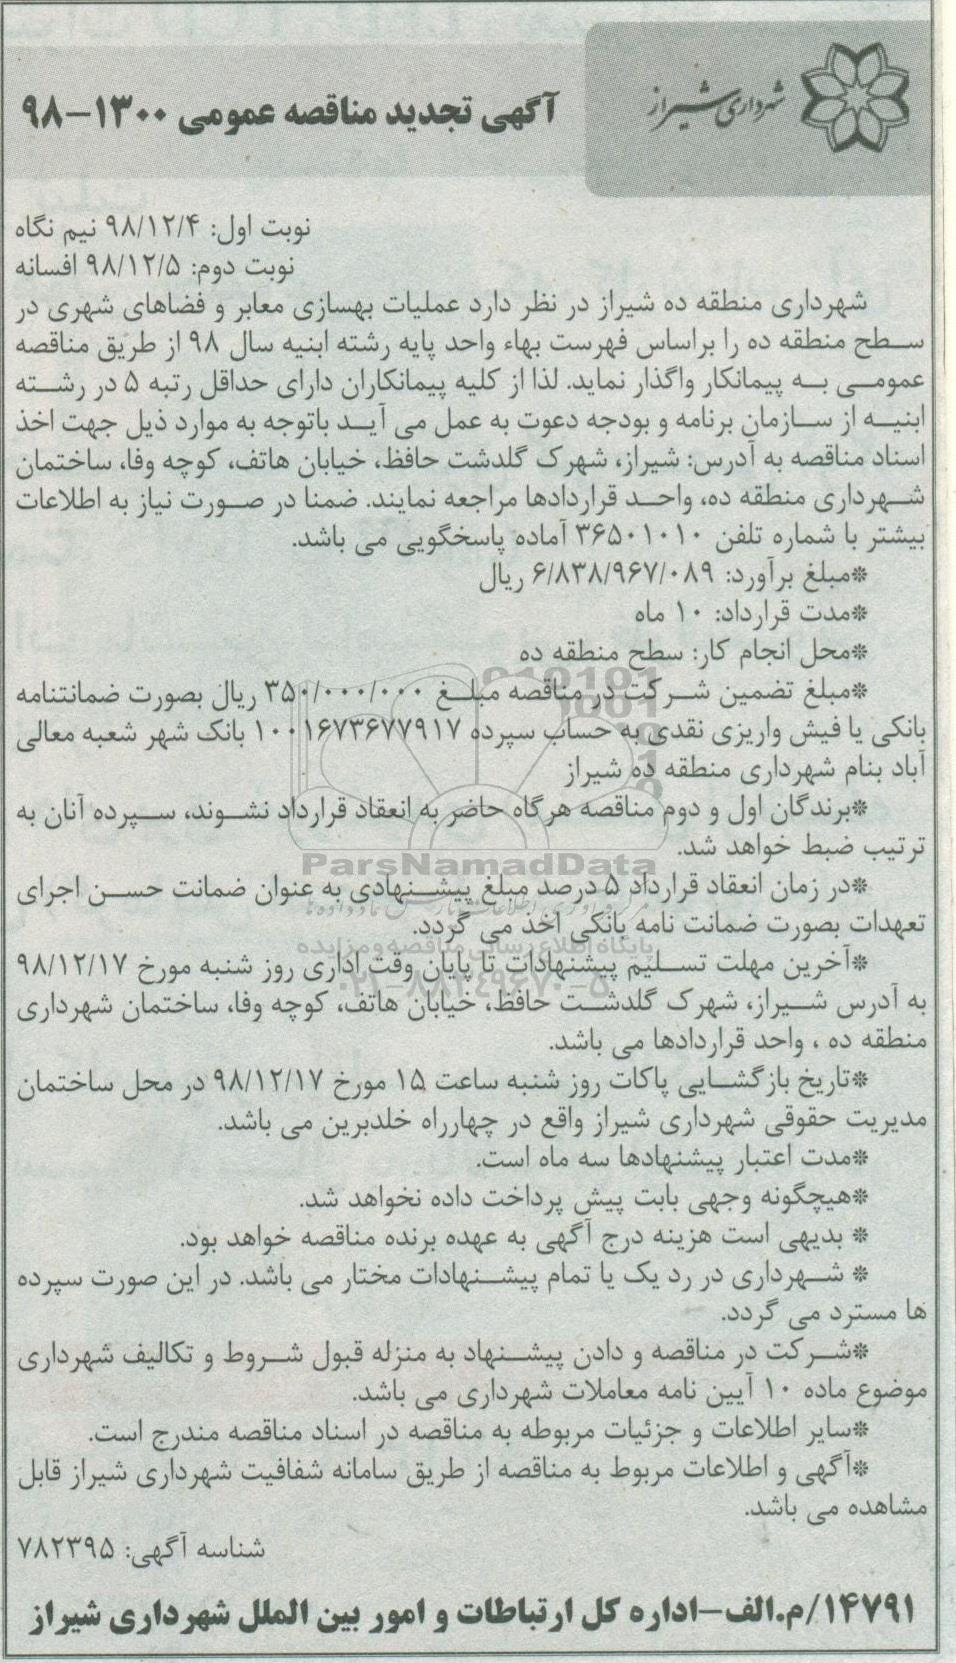 شهرداری شیراز
آگهی تجدید مناقصه عمومی ۱۳۰۰-۹۸
نوبت اول: ۹۸/۱۲/۴ نیم نگاه
نوبت دوم: ۹۸/۱۲/۵ افسانه
شهرداری منطقه ده شیراز در نظر دارد عملیات بهسازی معابر و فضاهای شهری در
سطح منطقه ده را براساس فهرست بهاء واحد پایه رشته ابنیه سال ۹۸ از طریق مناقصه
عمومی به پیمانکار واگذار نماید. لذا از کلیه پیمانکاران دارای حداقل رتبه ۵ در رشته
ابنیه از سازمان برنامه و بودجه دعوت به عمل می آید باتوجه به موارد ذیل جهت اخذ
اسناد مناقصه به آدرس: شیراز، شهرک گلدشت حافظ، خیابان هاتف، کوچه وفا، ساختمان
شهرداری منطقه ده، واحد قراردادها مراجعه نمایند. ضمنا در صورت نیاز به اطلاعات
بیشتر با شماره تلفن ۳۶۵۰۱۰۱۰ آماده پاسخگویی می باشد.
*مبلغ برآورد: ۶/۸۳۸/۹۶۷/۰۸۹ ریال
*مدت قرارداد: ۱۰ ماه
*محل انجام کار: سطح منطقه ده
*مبلغ تضمین شرکت در مناقصه مبلغ ۳۵۰/۰۰۰/۰۰۰ ریال بصورت ضمانتنامه
بانکی یا فیش واریزی نقدی به حساب سپرده ۱۰۰۱۶۷۳۶۷۷۹۱۷ بانک شهر شعبه معالی
آباد بنام شهرداری منطقه ده شیراز
*برندگان اول و دوم مناقصه هرگاه حاضر به انعقاد قرارداد نشوند، سپرده آنان به
ترتیب ضبط خواهد شد.
ParsNamadData
*در زمان انعقاد قرارداد ۵ درصد مبلغ پیشنهادی به عنوان ضمانت حسن اجرای
تعهدات بصورت ضمانت نامه بانکی اخذ می گردد.
پایگاه اطلاع رسانی مناقصه و مزایده
*آخرین مهلت تسلیم پیشنهادات تا پایان وقت اداری روز شنبه مورخ ۹۸/۱۲/۱۷
۰۲۱-۸۸۳۴۹۶۷۰-۵
به آدرس شیراز، شهرک گلدشت حافظ، خیابان هاتف، کوچه وفا، ساختمان شهرداری
منطقه ده ، واحد قراردادها می باشد.
*تاریخ بازگشایی پاکات روز شنبه ساعت ۱۵ مورخ ۹۸/۱۲/۱۷ در محل ساختمان
مدیریت حقوقی شهرداری شیراز واقع در چهارراه خلدبرین می باشد.
*مدت اعتبار پیشنهادها سه ماه است.
*هیچگونه وجهی بابت پیش پرداخت داده نخواهد شد.
* بدیهی است هزینه درج آگهی به عهده برنده مناقصه خواهد بود.
* شهرداری در رد یک یا تمام پیشنهادات مختار می باشد. در این صورت سپرده
ها مسترد می گردد.
*شرکت در مناقصه و دادن پیشنهاد به منزله قبول شروط و تکالیف شهرداری
موضوع ماده ۱۰ آیین نامه معاملات شهرداری می باشد.
*سایر اطلاعات و جزئیات مربوطه به مناقصه در اسناد مناقصه مندرج است.
*آگهی و اطلاعات مربوط به مناقصه از طریق سامانه شفافیت شهرداری شیراز قابل
مشاهده می باشد.
شناسه آگهی: ۷۸۲۳۹۵
۱۴۷۹۱/م.الف-اداره کل ارتباطات و امور بین الملل شهرداری شیراز